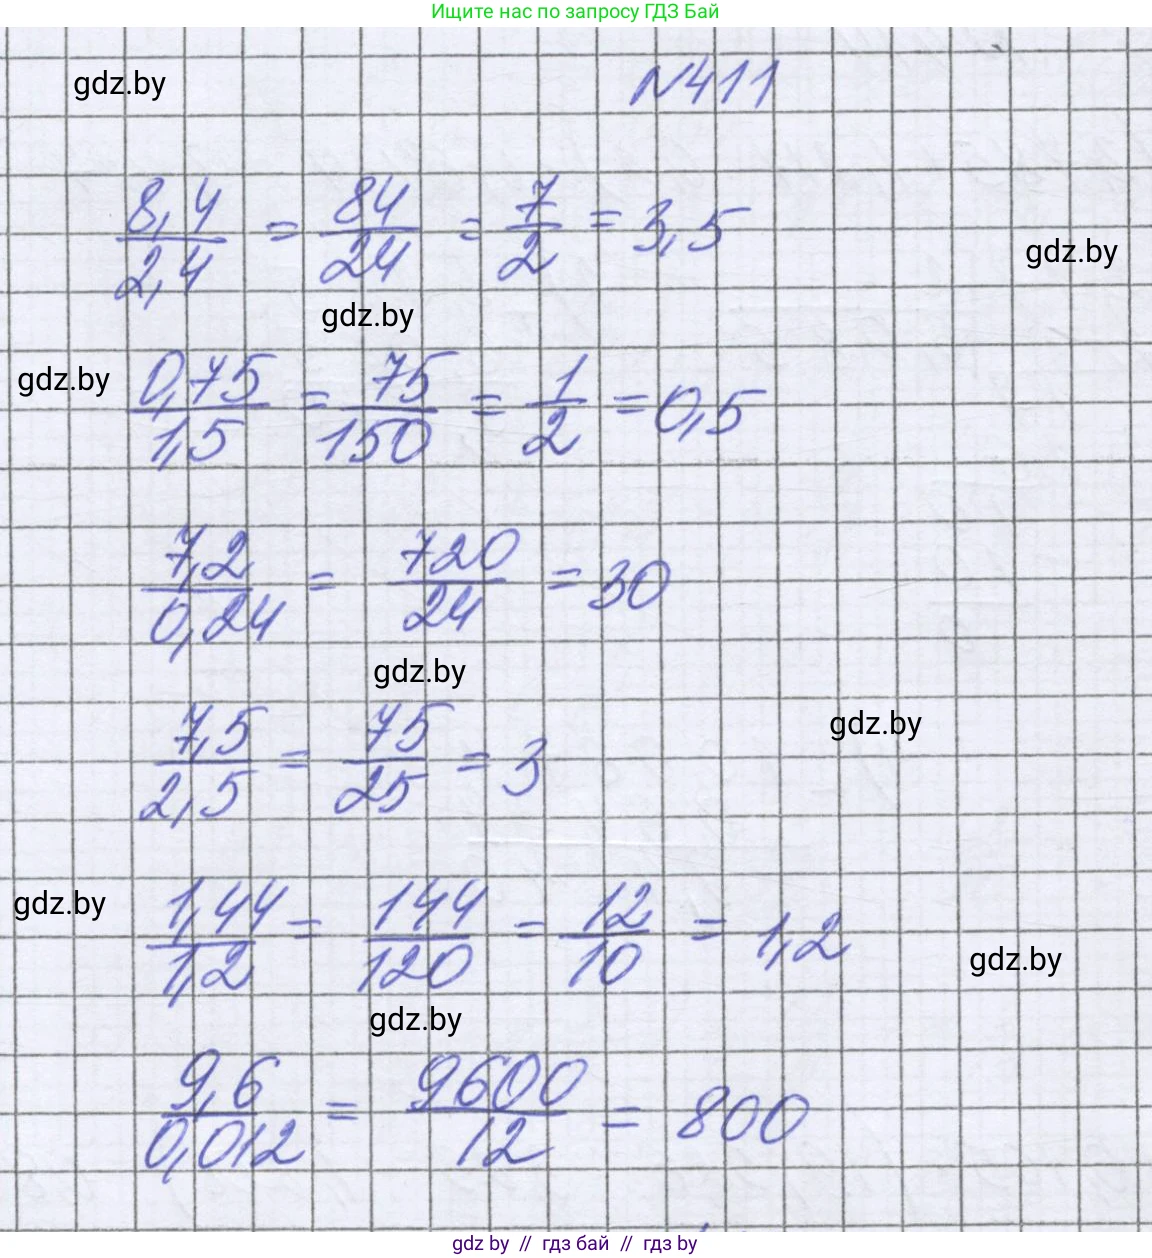 Ищите нас по запросу ГДЗ Бай
N411
gdz.by
8,4/2,4 = 84/24 = 7/2 = 3,5
gdz.by
gdz.by
0,75/1,5 = 75/150 = 1/2 = 0,5
gdz.by
7,2/0,24 = 720/24 = 30
gdz.by
7,5/2,5 = 75/25 = 3
gdz.by
1,44/1,2 = 144/120 = 12/10 = 1,2
gdz.by
gdz.by
gdz.by
9,6/0,012 = 9600/12 = 800
gdz by // гдз бай // гдз by